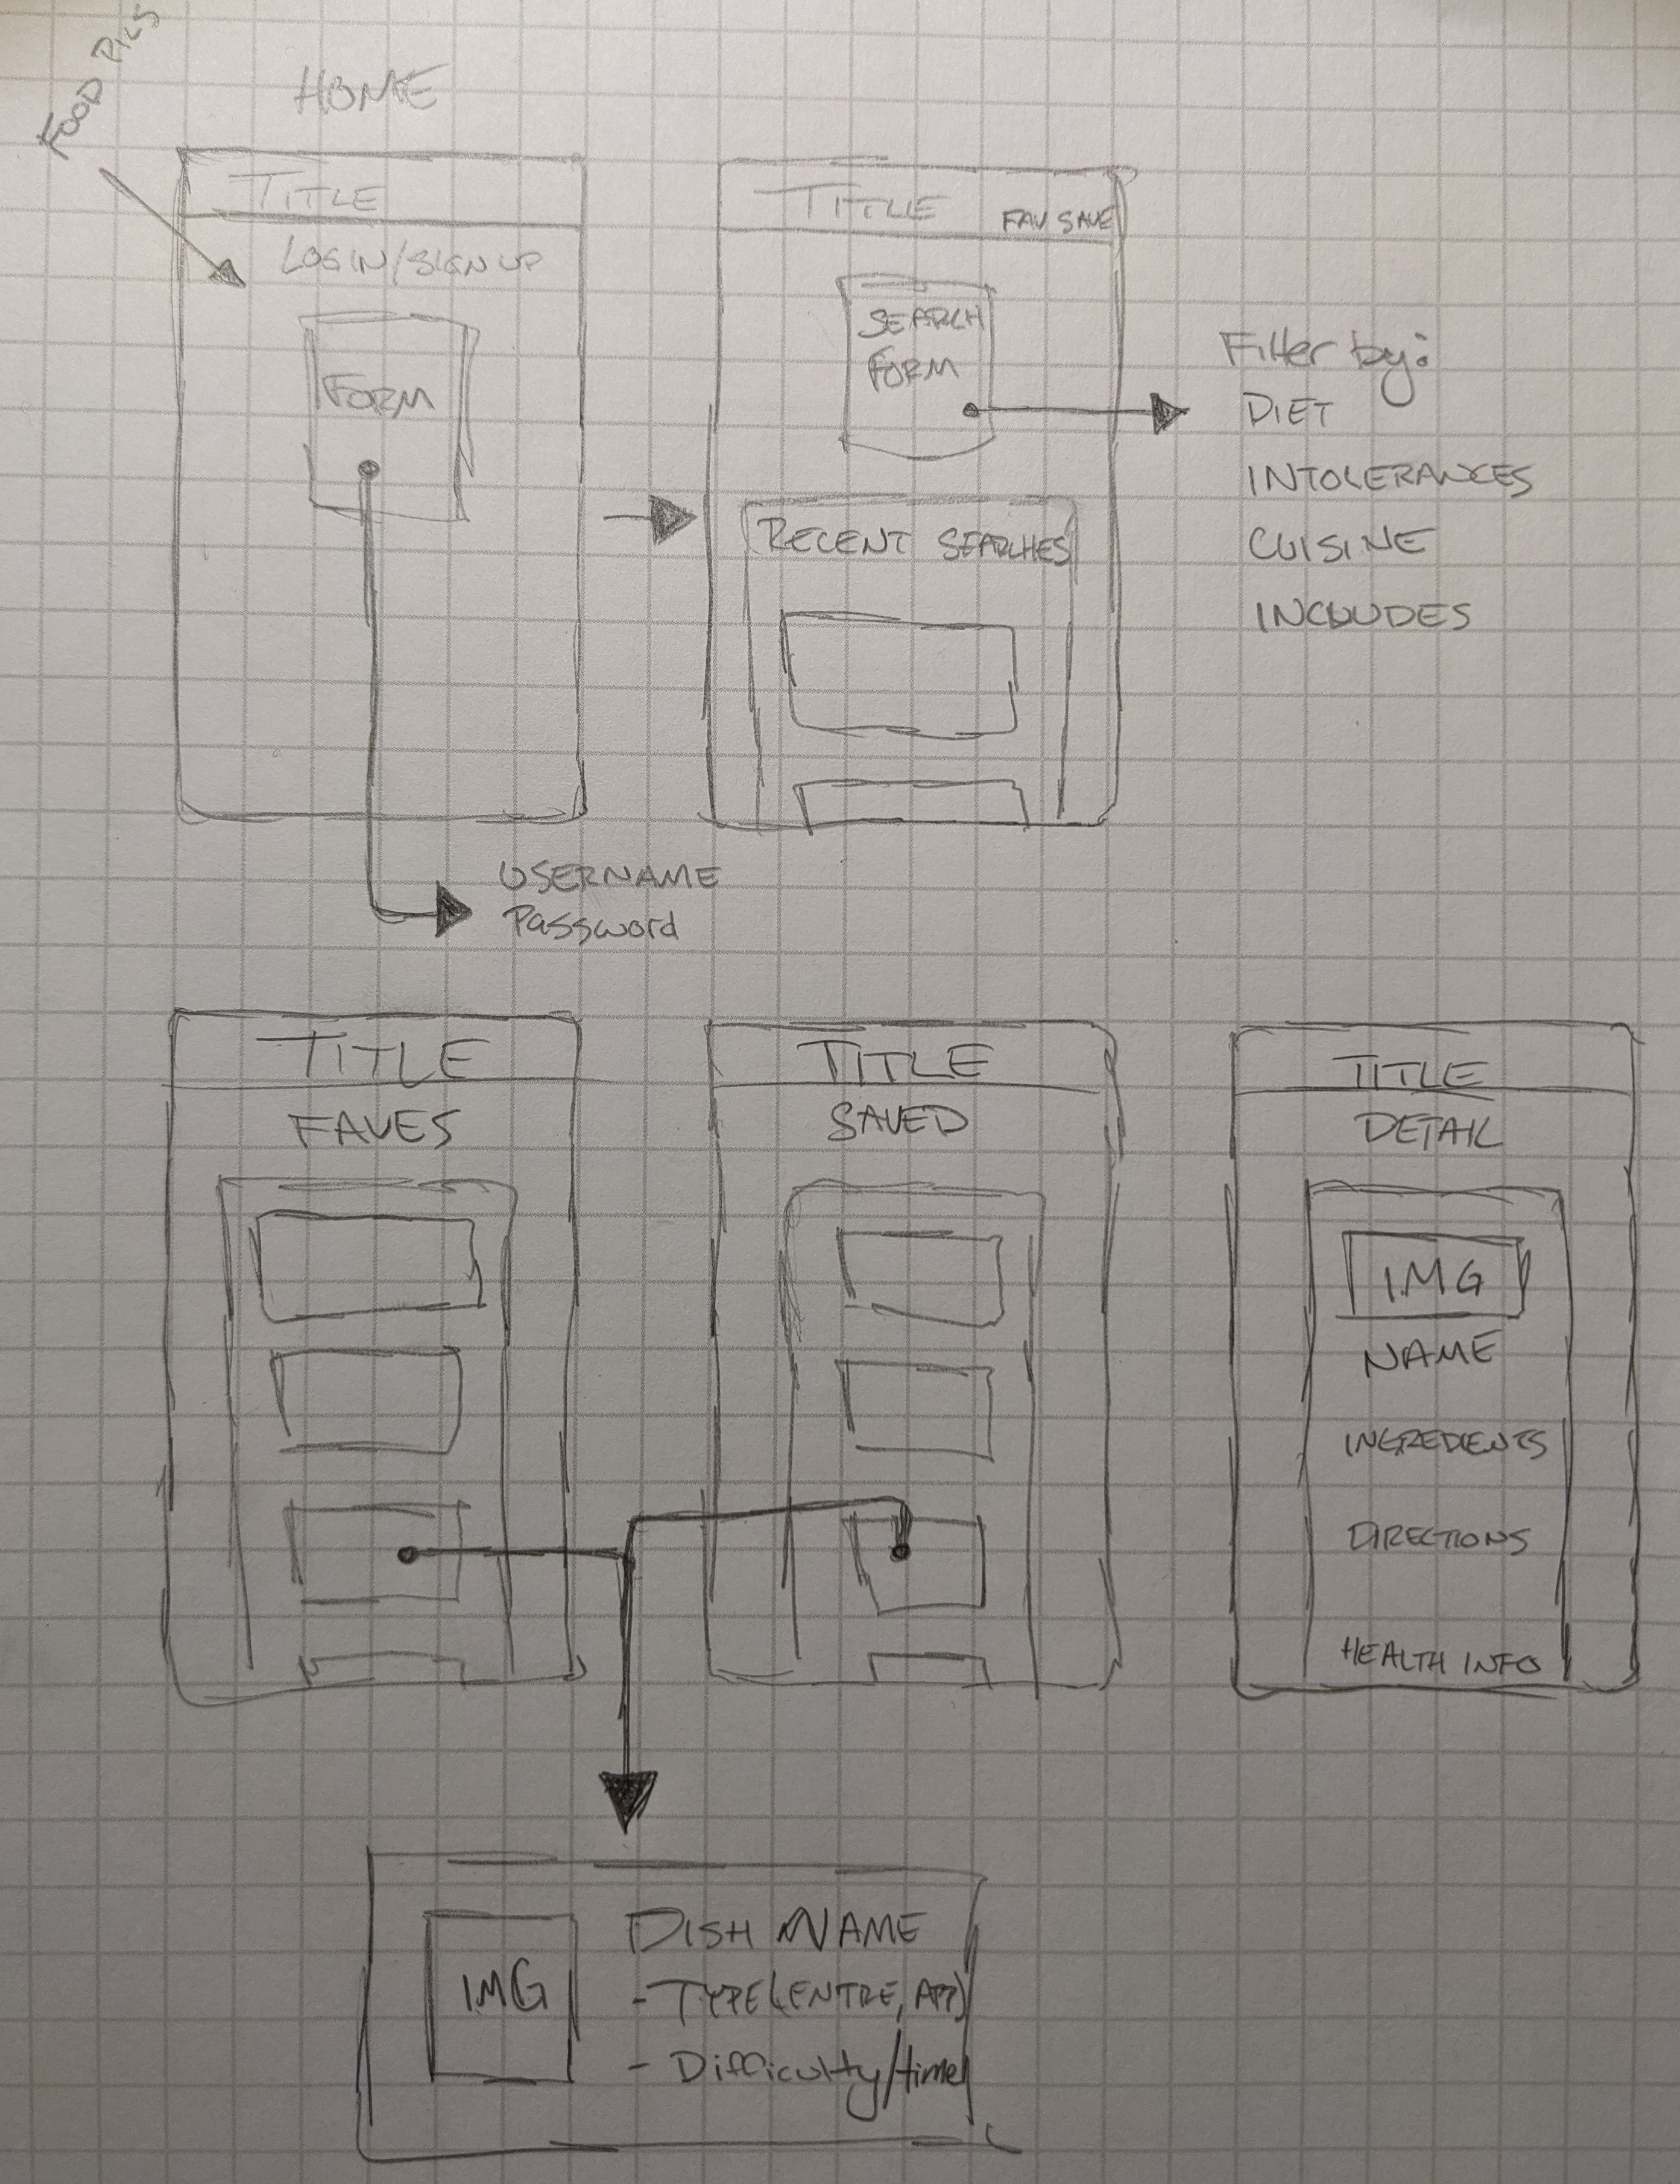 FOOD PICS
HOME
TITLE
LOGIN/SIGN UP
FORM
USERNAME
Password
TITLE
FAV SAVE
SEARCH
FORM
RECENT SEARCHES
Filter by:
DIET
INTOLERANCES
CUISINE
INCLUDES
TITLE
FAVES
TITLE
SAVED
TITLE
DETAIL
IMG
NAME
INGREDIENTS
DIRECTIONS
HEALTH INFO
IMG
DISH NAME
- TYPE (ENTRE, APP)
- Difficulty/time